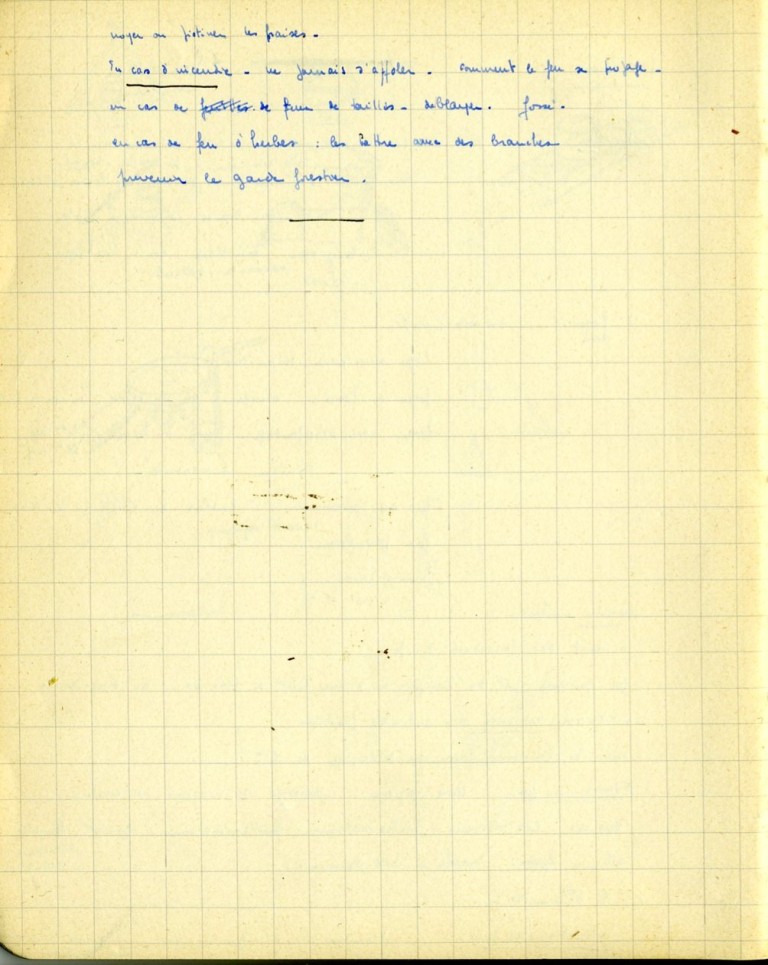 noyer ou piétiner les braises.
En cas d'incendie - ne jamais s'affoler. comment le feu se propage -
en cas de de feux de taillis - déblayer. fossé.
en cas de feu d'herbes : les battre avec des branches
prévenir le garde forestier.